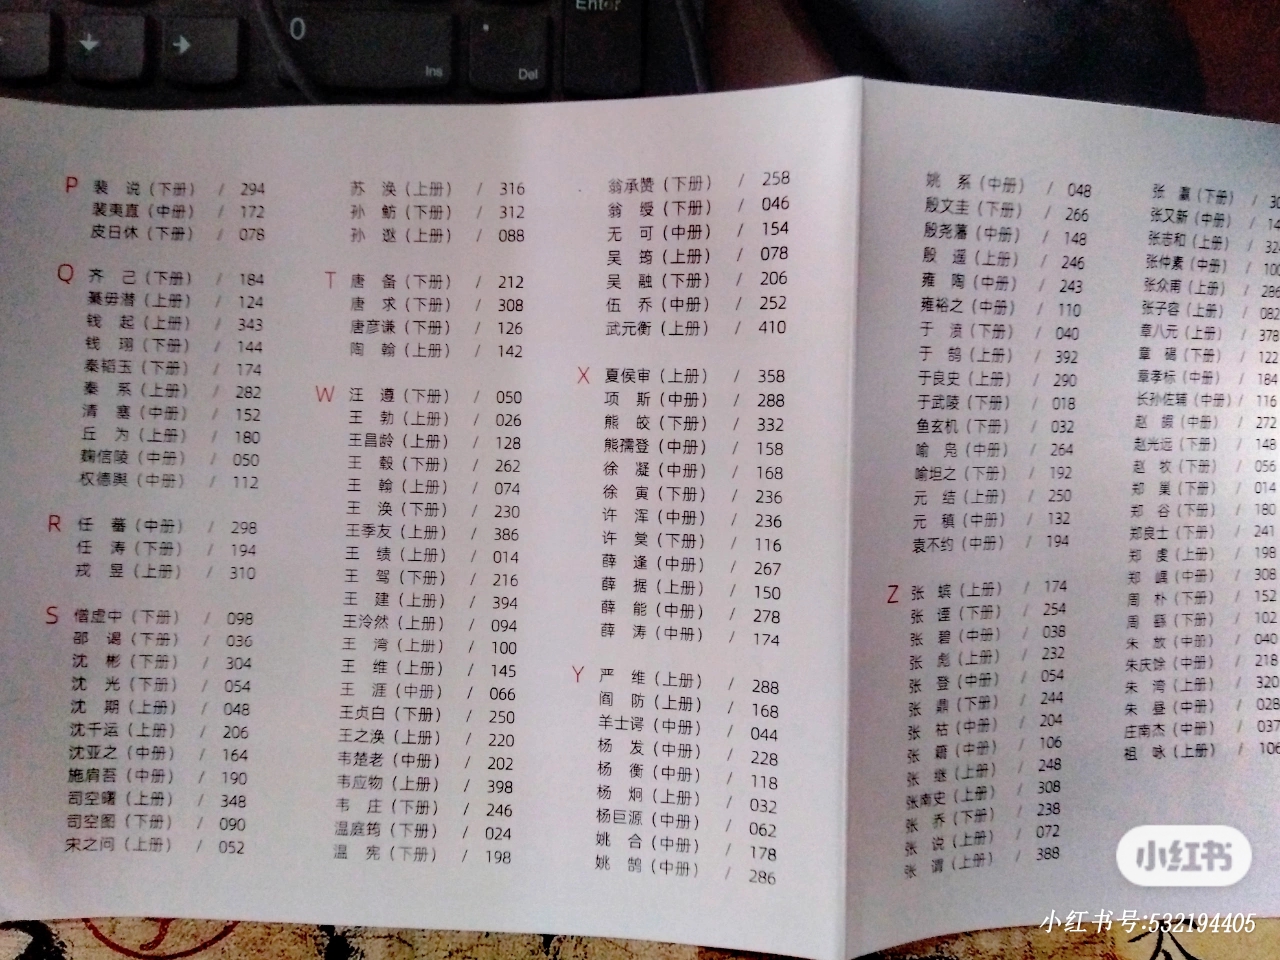 Enter
0
Ins
Del
P 裴 说（下册） / 294
裴夷直（中册） / 172
皮日休（下册） / 078
Q 齐 己（下册） / 184
綦毋潜（上册） / 124
钱 起（上册） / 343
钱 珝（下册） / 144
秦韬玉（下册） / 174
秦 系（上册） / 282
清 塞（中册） / 152
丘 为（上册） / 180
麹信陵（中册） / 050
权德舆（中册） / 112
R 任 蕃（中册） / 298
任 涛（下册） / 194
戎 昱（上册） / 310
S 僧虚中（下册） / 098
邵 谒（下册） / 036
沈 彬（下册） / 304
沈 光（下册） / 054
沈 期（上册） / 048
沈千运（上册） / 206
沈亚之（中册） / 164
施肩吾（中册） / 190
司空曙（上册） / 348
司空图（下册） / 090
宋之问（上册） / 052
苏 涣（上册） / 316
孙 鲂（下册） / 312
孙 逖（上册） / 088
T 唐 备（下册） / 212
唐 求（下册） / 308
唐彦谦（下册） / 126
陶 翰（上册） / 142
W 汪 遵（下册） / 050
王 勃（上册） / 026
王昌龄（上册） / 128
王 毂（下册） / 262
王 翰（上册） / 074
王 涣（下册） / 230
王季友（上册） / 386
王 绩（上册） / 014
王 驾（下册） / 216
王 建（上册） / 394
王泠然（上册） / 094
王 湾（上册） / 100
王 维（上册） / 145
王 涯（中册） / 066
王贞白（下册） / 250
王之涣（上册） / 220
韦楚老（中册） / 202
韦应物（上册） / 398
韦 庄（下册） / 246
温庭筠（下册） / 024
温 宪（下册） / 198
翁承赞（下册） / 258
翁 绶（下册） / 046
无 可（中册） / 154
吴 筠（上册） / 078
吴 融（下册） / 206
伍 乔（中册） / 252
武元衡（上册） / 410
X 夏侯审（上册） / 358
项 斯（中册） / 288
熊 皎（下册） / 332
熊孺登（中册） / 158
徐 凝（中册） / 168
徐 寅（下册） / 236
许 浑（中册） / 236
许 棠（下册） / 116
薛 逢（中册） / 267
薛 据（上册） / 150
薛 能（中册） / 278
薛 涛（中册） / 174
Y 严 维（上册） / 288
阎 防（上册） / 168
羊士谔（中册） / 044
杨 发（中册） / 228
杨 衡（中册） / 118
杨 炯（上册） / 032
杨巨源（中册） / 062
姚 合（中册） / 178
姚 鹄（中册） / 286
姚 系（中册） / 048
殷文圭（下册） / 266
殷尧藩（中册） / 148
殷 遥（上册） / 246
雍 陶（中册） / 243
雍裕之（中册） / 110
于 濆（下册） / 040
于 鹄（上册） / 392
于良史（上册） / 290
于武陵（下册） / 018
鱼玄机（下册） / 032
喻 凫（中册） / 264
喻坦之（下册） / 192
元 结（上册） / 250
元 稹（中册） / 132
袁不约（中册） / 194
Z 张 蠙（上册） / 174
张 （下册） / 254
张 碧（中册） / 038
张 彪（上册） / 232
张 登（中册） / 054
张 鼎（下册） / 244
张 祜（中册） / 204
张 籍（中册） / 106
张 继（上册） / 248
张南史（上册） / 308
张 乔（下册） / 238
张 说（上册） / 072
张 谓（上册） / 388
张 瀛（下册） / 30
张又新（中册） / 14
张志和（上册） / 324
张仲素（中册） / 100
张众甫（上册） / 286
张子容（上册） / 082
章八元（上册） / 378
章 碣（下册） / 122
章孝标（中册） / 184
长孙佐辅（中册） / 116
赵 嘏（中册） / 272
赵光远（下册） / 148
赵 牧（下册） / 056
郑 巢（下册） / 014
郑 谷（下册） / 180
郑良士（下册） / 241
郑 虔（上册） / 198
郑 （中册） / 308
周 朴（下册） / 152
周 繇（下册） / 102
朱 放（中册） / 040
朱庆馀（中册） / 218
朱 湾（上册） / 320
朱 昼（中册） / 028
庄南杰（中册） / 037
祖 咏（上册） / 106
小红书
小红书号:532194405